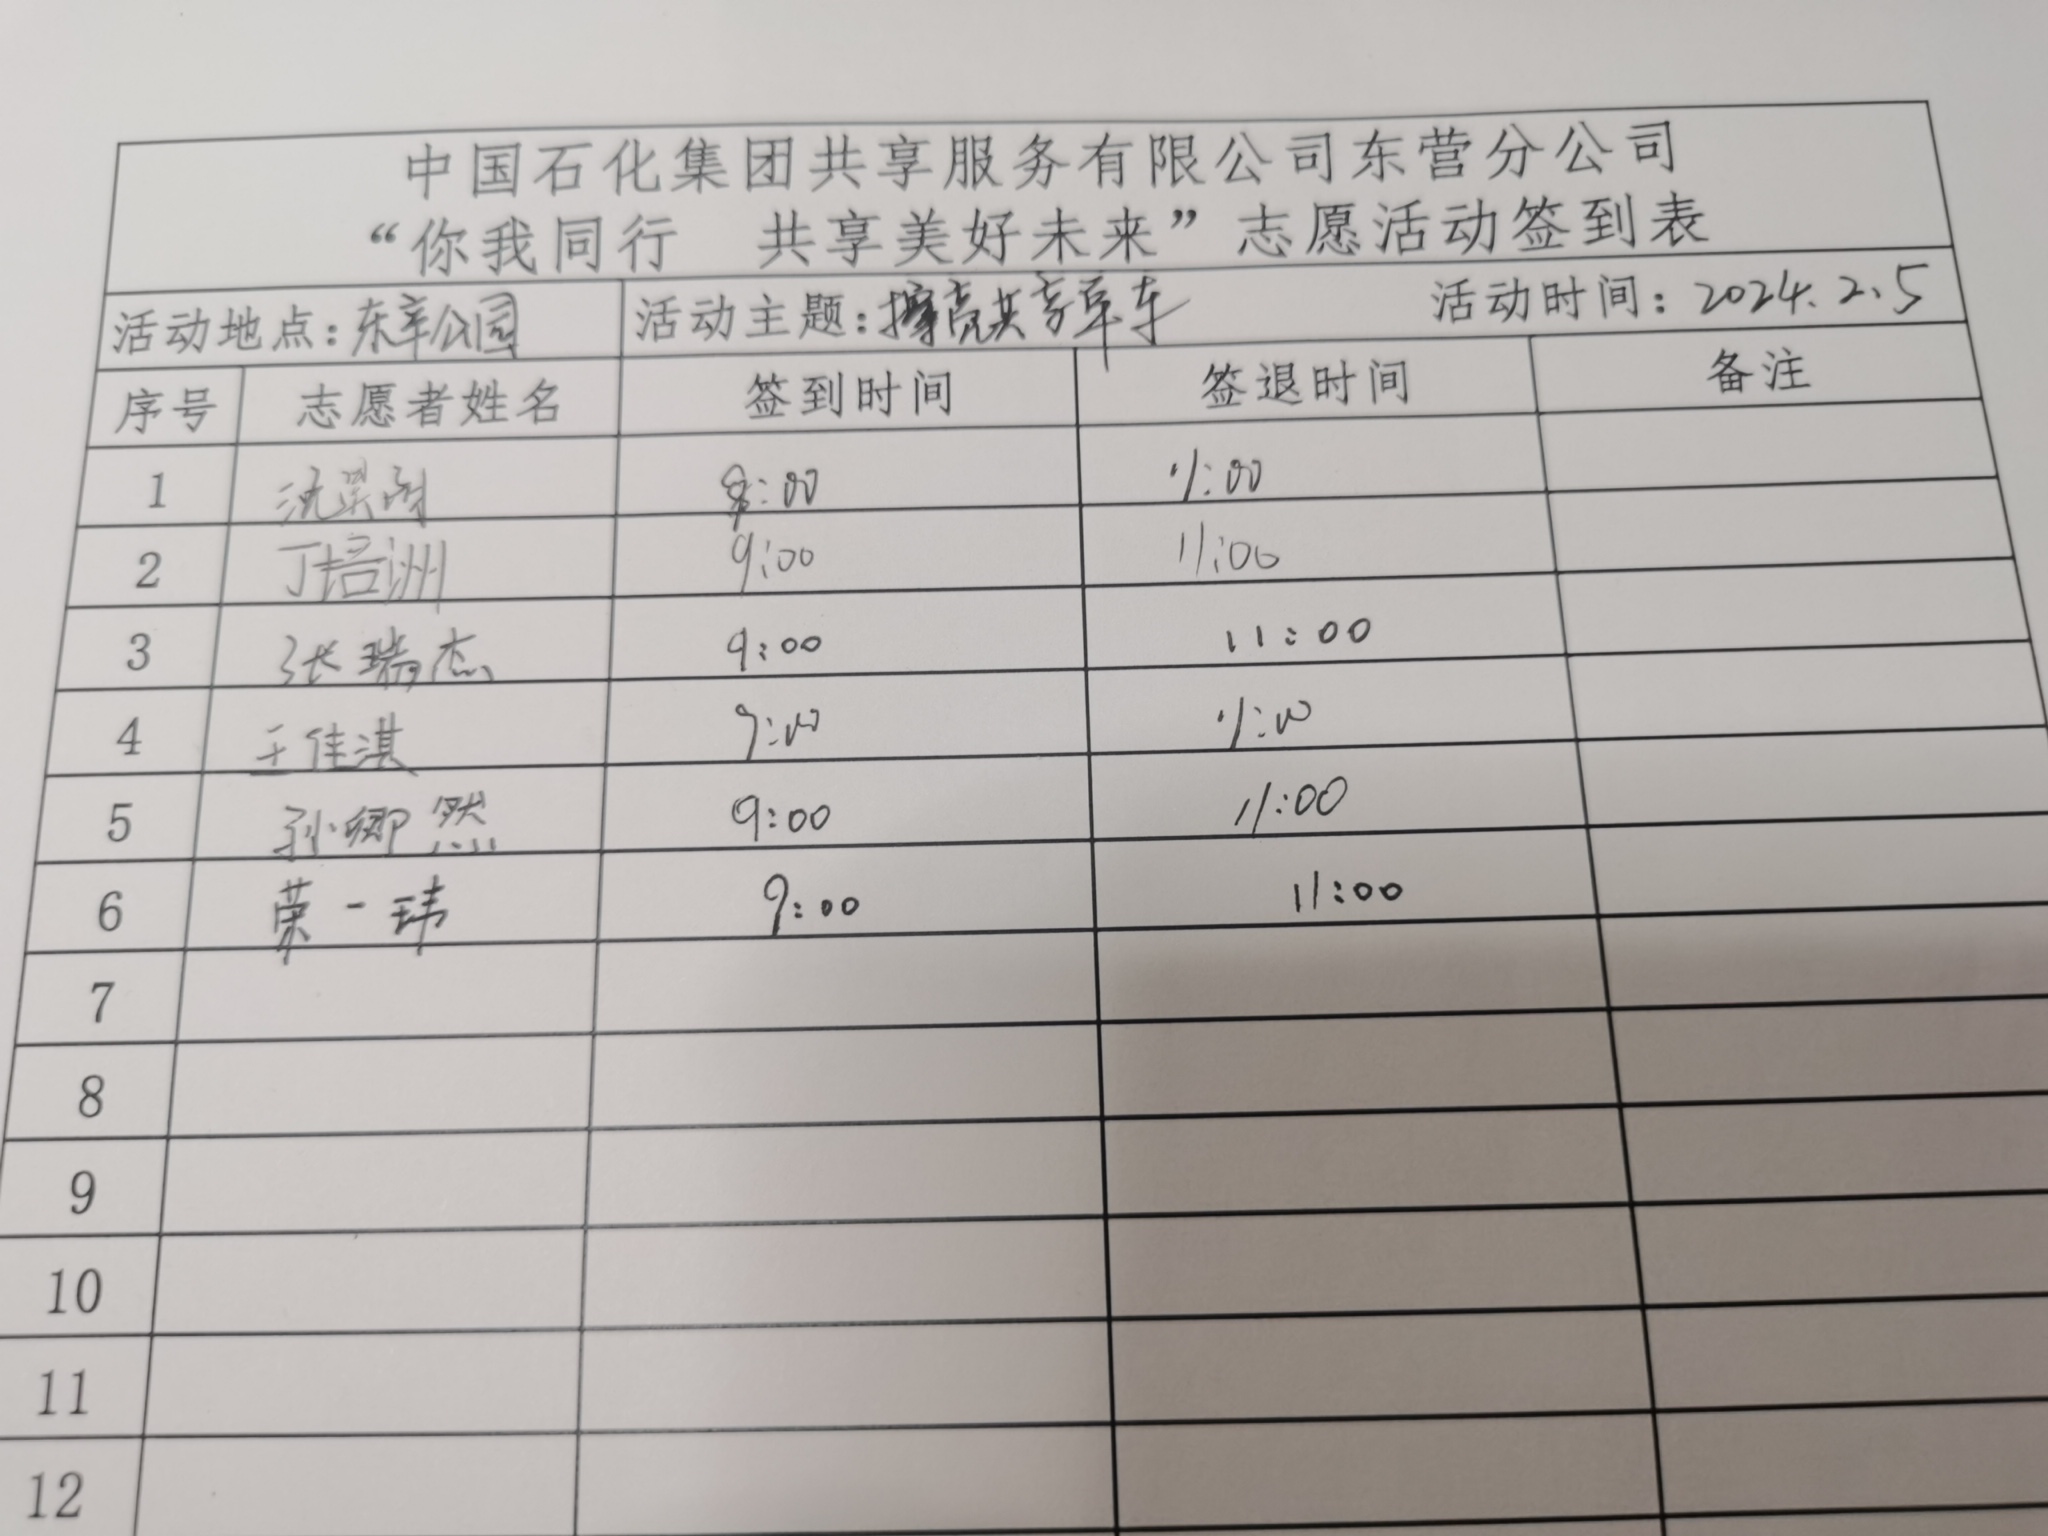 中国石化集团共享服务有限公司东营分公司
“你我同行 共享美好未来”志愿活动签到表
活动地点：东辛公园 活动主题：擦亮共享单车 活动时间：2024.2.5
序号 志愿者姓名 签到时间 签退时间 备注
1 :00 11:00
2 丁培洲 9:00 11:00
3 张瑞杰 9:00 11:00
4 王佳淇 9:00 11:00
5 孙卿然 9:00 11:00
6 荣一玮 9:00 11:00
7
8
9
10
11
12